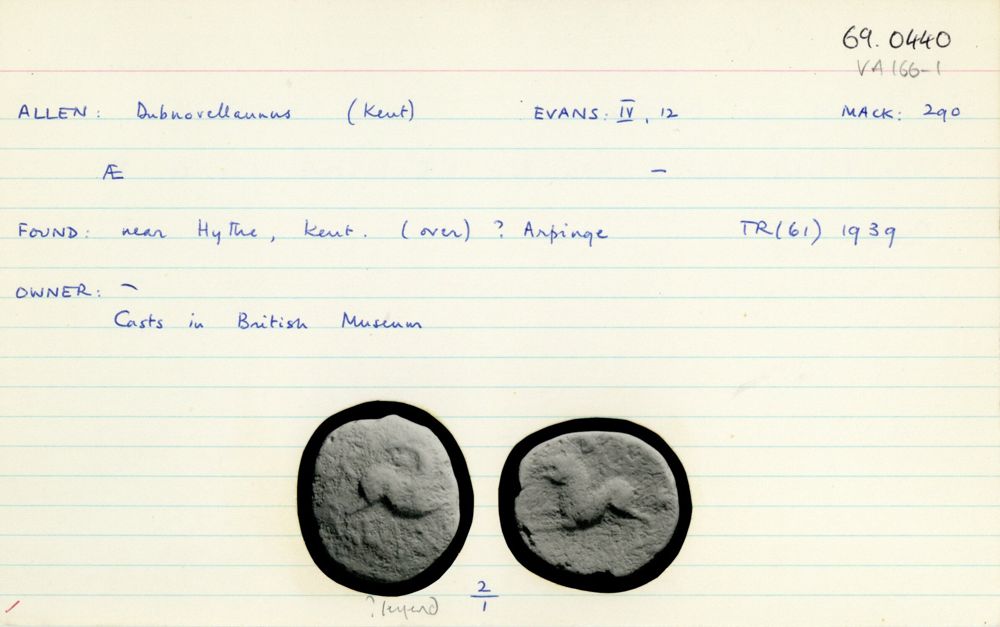 69.0440
VA 166-1
ALLEN: Dubnovellaunus (Kent) EVANS: IV, 12 MACK: 290
Æ –
FOUND: near Hythe, Kent. (over) ? Arpinge TR(61) 1939
OWNER: –
Casts in British Museum
? legend
2
1